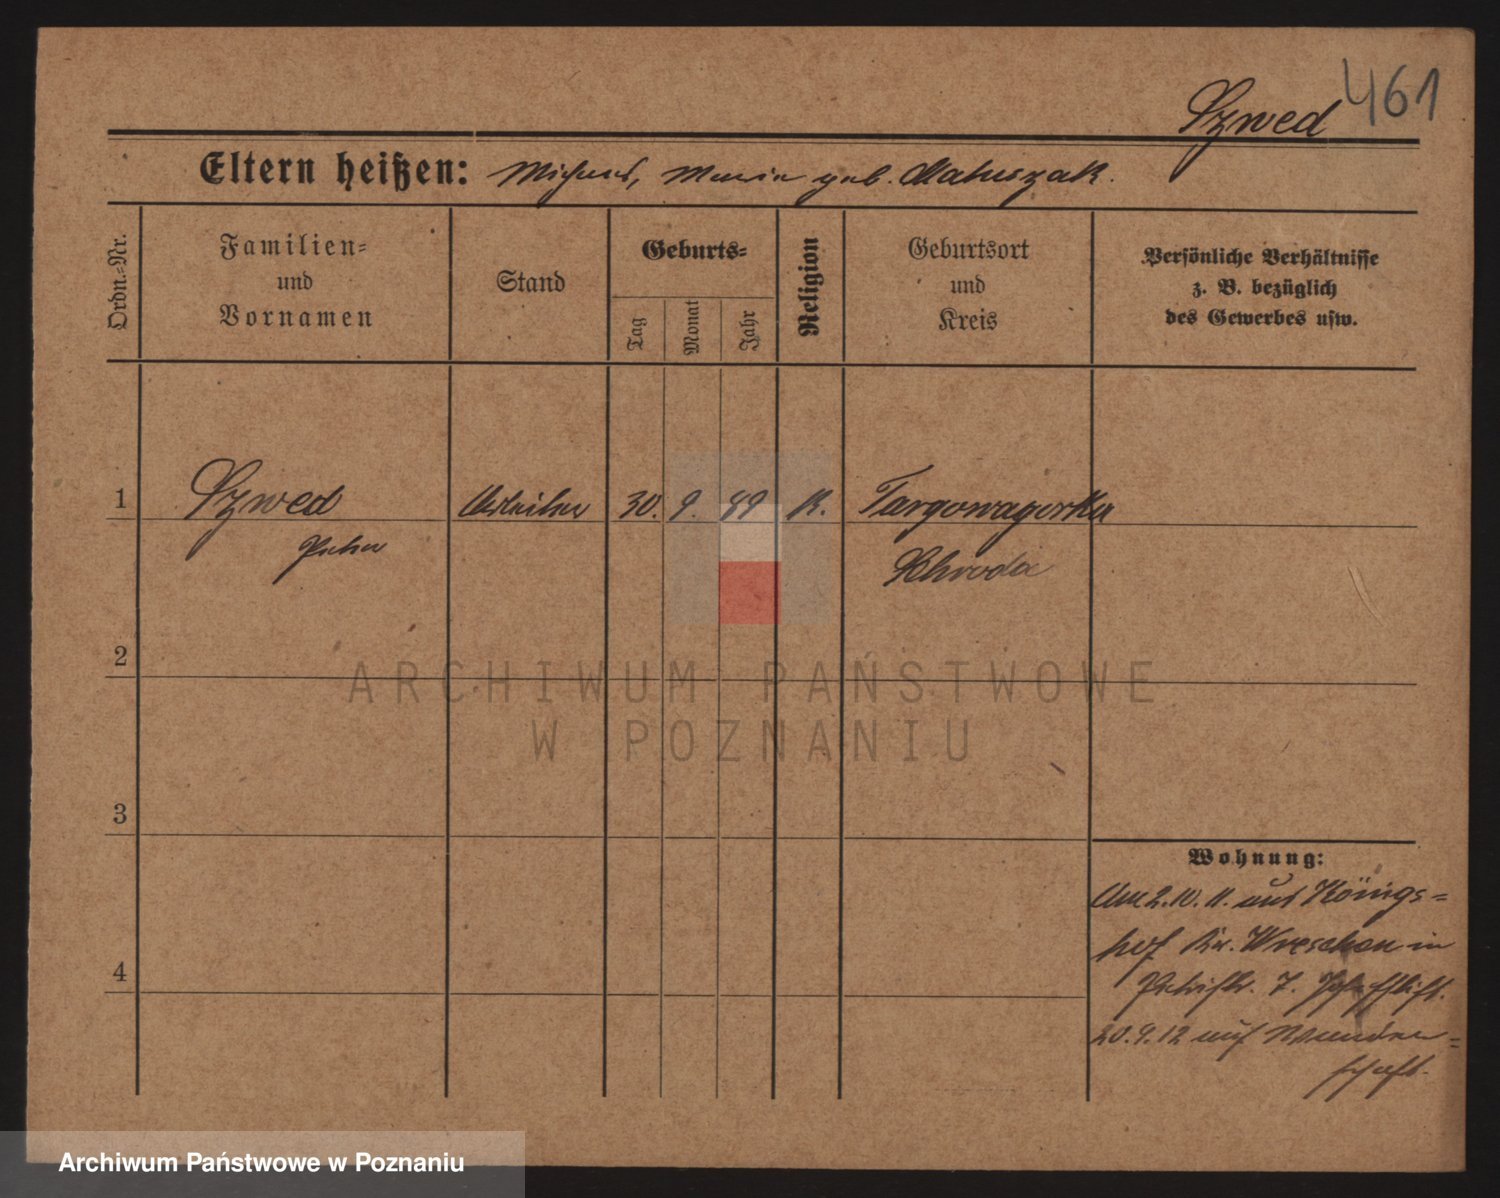 Szwed 461
Eltern heißen: Michael, Maria geb. Matuszak.
Ordn.=Nr.
Familien=
und
Vornamen
Stand
Geburts=
Tag
Monat
Jahr
Religion
Geburtsort
und
Kreis
Persönliche Verhältnisse
z. B. bezüglich
des Gewerbes usw.
1 Szwed Arbeiter 30. 9. 89 K. Targowagorka
Peter Schroda
2
3
4
Wohnung:
Am 2.10.11. aus Königs=
hof Kr. Wreschen in
7.
20.9.12 auf Wander=
schaft.
ARCHIWUM PAŃSTWOWE
W POZNANIU
Archiwum Państwowe w Poznaniu